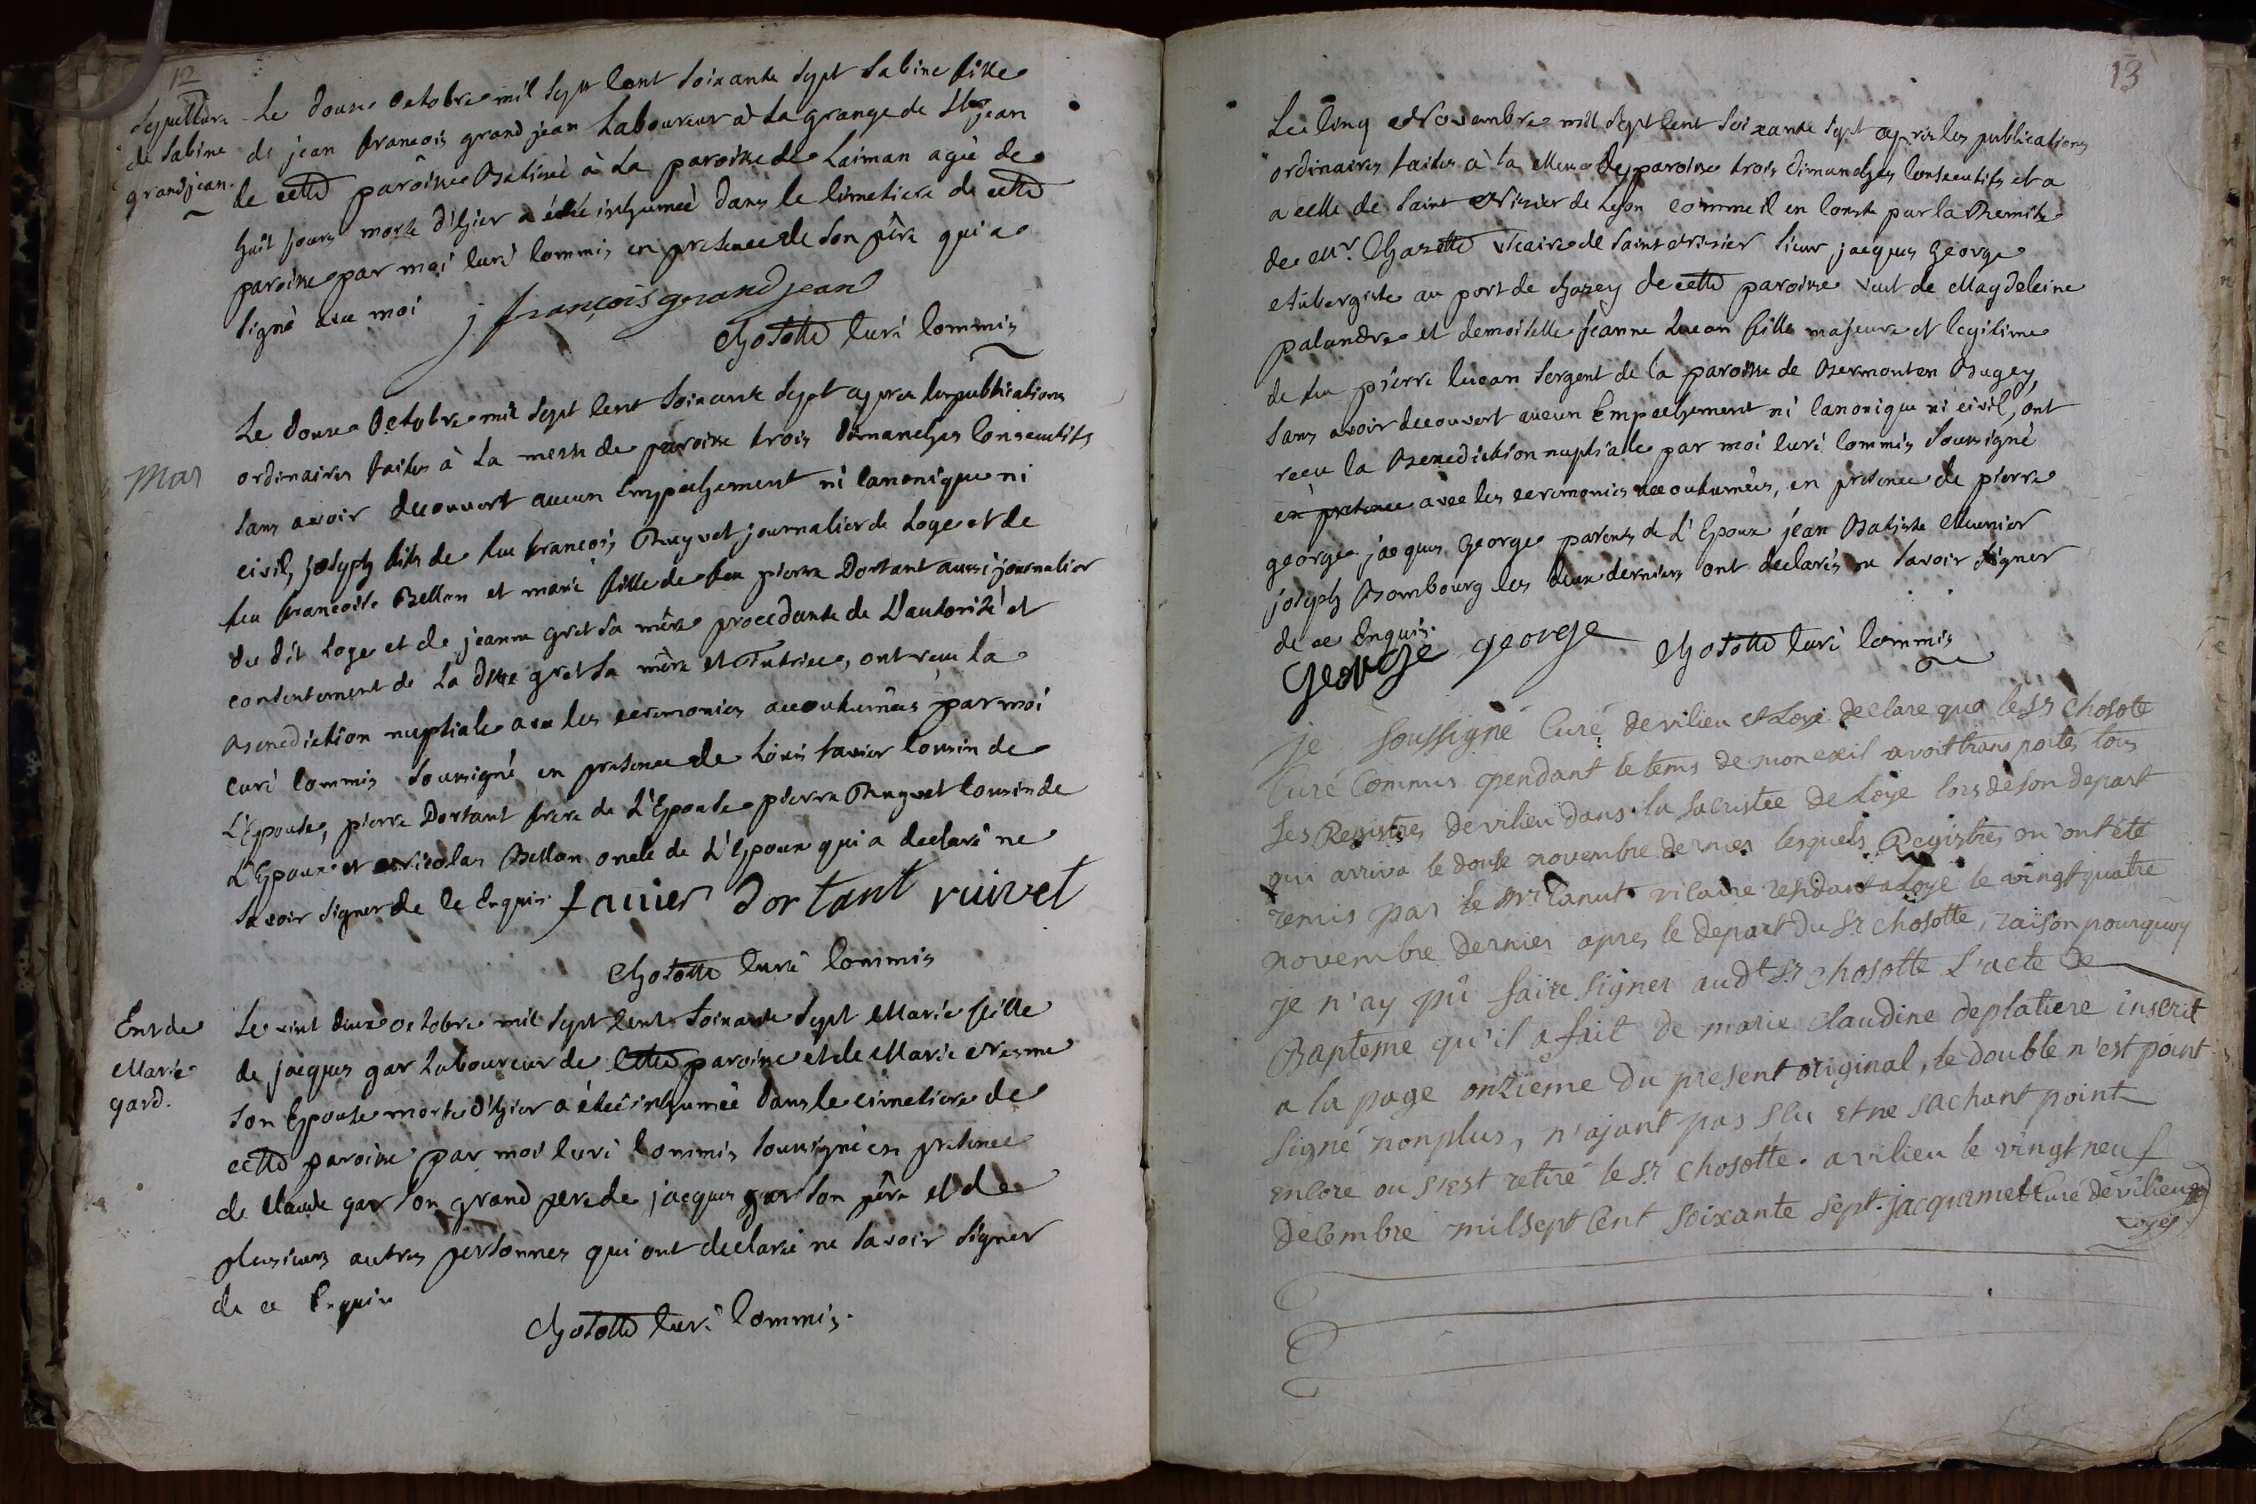 12
Sepulture
de Sabine
grandjean.
Le douze octobre mil sept cent soixante sept Sabine fille
de jean francois grand jean Laboureur à La grange de St jean
de cette paroisse Batisée à La paroisse de Laiman agée de
huit jours morte d'hier a étée inhumeé dans le Cimetiere de cette
paroisse par moi Curé Commis en presence de son pêre qui a
signé avec moi j françois grand jean
Chosotte Curé Commis
Mar
Le douze Octobre mil sept cent soixante sept apres les publications
ordinaires faites à La messe de paroisse trois dimanches Consecutifs
sans avoir decouvert aucun Empechement ni Canonique ni
civil, joseph fils de feu francois Ruyvet journalier de Loye et de
feu francoise Bellon et marie fille de feu pierre Dortant aussi journalier
du dit Loye et de jeanne gret sa mêre procedante de L'autorité et
consentement de La dite gret sa mêre et Tutrice, ont recu La
Benediction nuptiale avec les ceremonies accoutumêes par moi
curé Commis soussigné en presence de Loüis favier Cousin de
L'Epouse, pierre Dortant frere de L'Epouse pierre Ruyvet Cousin de
L'Epoux et Nicolas Bellon oncle de L'Epoux qui a declaré ne
savoir signer de Ce Enquis favier dortant ruivet
Chosotte Curé Commis
Ent de
Marie
gard.
Le vint deux octobre mil sept cent soixante sept Marie fille
de jacques gar Laboureur de Cette paroisse et de Marie Nesme
son Epouse morte d'hier a étée inhumêe dans le cimetiere de
cette paroisse par moi Curé Commis soussigné en presence
de Claude gar son grand pere de jacques gar son pêre et de
plusieurs autres personnes qui ont declaré ne savoir signer
de ce Enquis
Chosotte Curé Commis.
13
Le Cinq Novembre mil sept Cent soixante sept apres les publications
ordinaires faites à la Messe de paroisse trois dimanches Consecutifs et a
a celle de saint Nizier de Lyon comme il en Conste par la Remise
de Mr. Chazette vicaire de saint Nizier sieur jacques George
Aubergiste au port de chazey de cette paroisse veuf de Magdeleine
palandre et demoiselle jeanne Lucan fille majeure et legitime
de feu pierre Lucan sergent de la paroisse de Bermont en Bugey,
sans avoir decouvert aucun Empechement ni Canonique ni civil, ont
reçu la Benediction nuptialle par moi Curé Commis soussigné
en presence avec les ceremonies accoutumêes, en presence de pierre
george jacques George parents de L'Epoux jean Batiste Meunier
joseph Bombourg les deux derniers ont declarés ne savoir signer
de ce Enquis.
George george Chosotte Curé Commis
je soussigné Curé de vilieu et Loye declare que le Sr Chosotte
Curé Commis pendant le tems de mon exil avoit transportés tous
les Registres de vilieu dans la sacristie de Loye lors de son depart
qui arriva le douse novembre dernier lesquels Registres m'ont été
remis par le Sr Canut vicaire residant a Loye le vingt quatre
novembre dernier apres le depart du Sr chosotte, raison pourquoy
je n'ay pû faire signer aud.t Sr chosotte L'acte de
Bapteme qu'il a fait de marie claudine deplatiere inscrit
a la page onzieme du present original, le double n'est point
signé non plus, n'ajant pas scu et ne sachant point
encore ou s'est retiré le Sr Chosotte. a vilieu le vingt neuf
decembre mil sept Cent soixante sept. jacquemet Curé de vilieu et
Loyes